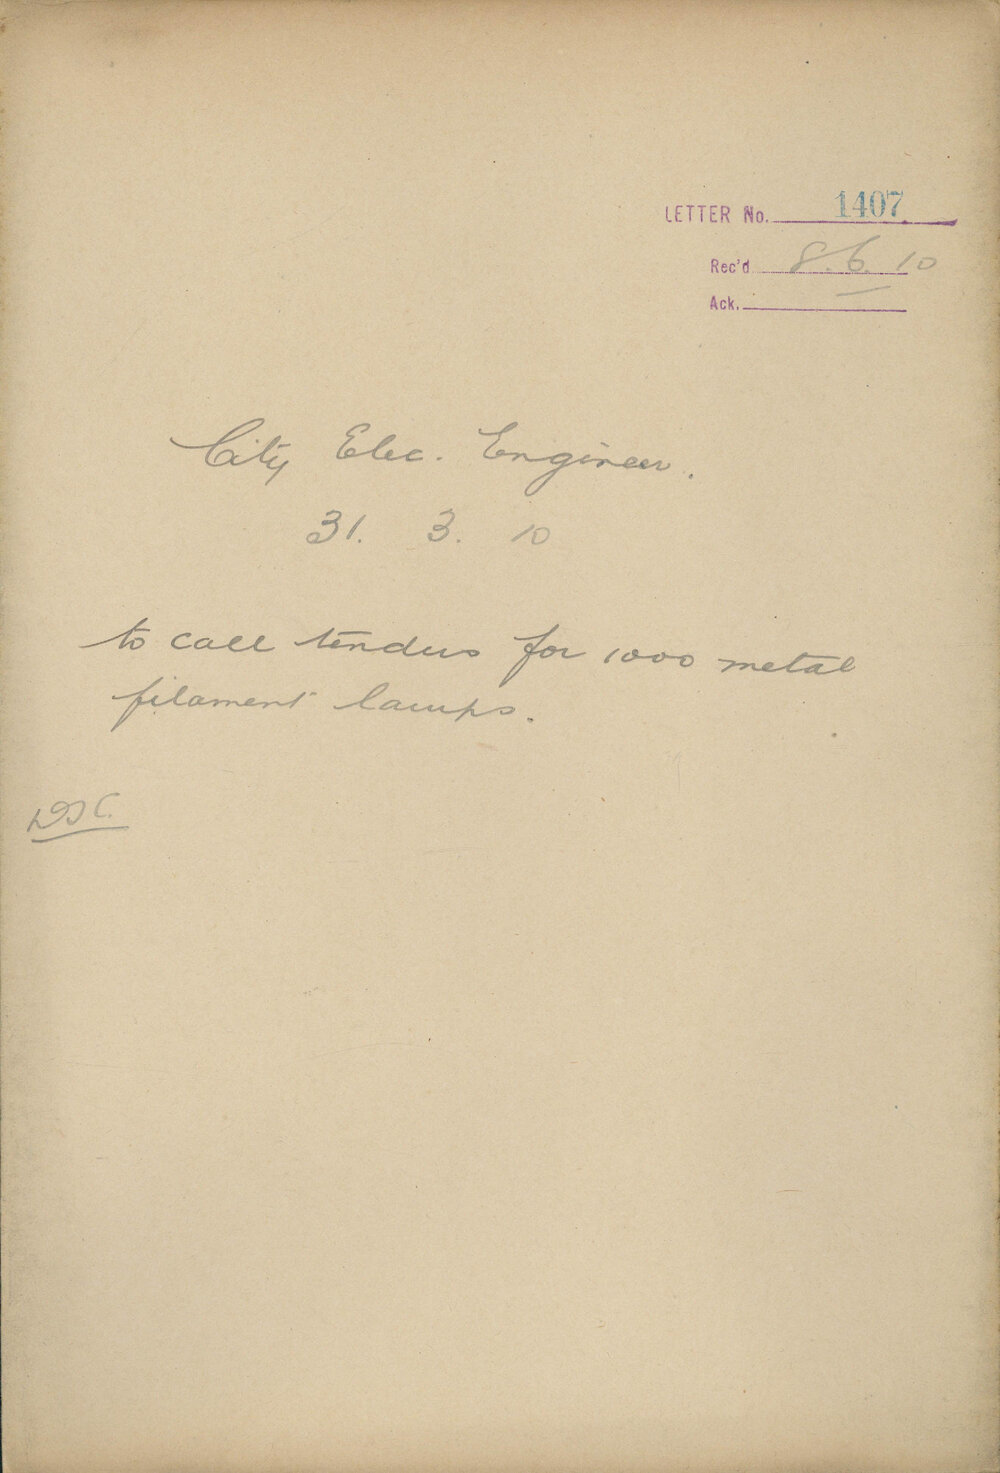 LETTER No. 1407
Rec'd 8.6.10
Ack.
City Elec. Engineer.
31. 3. 10
to call tenders for 1000 metal
filament lamps.